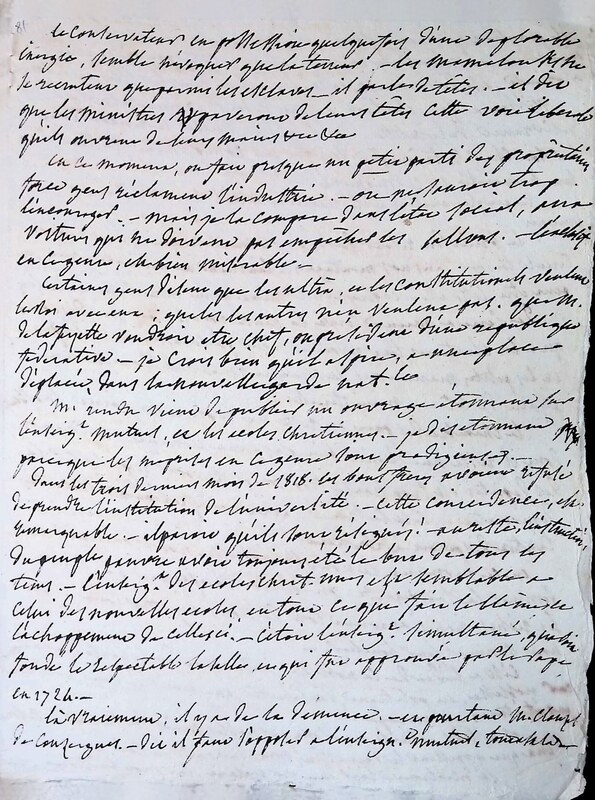 81
le Conservateur en possession quelquefois d'une deplorable
énergie, semble n'invoquer que la terreur. - les mamelouks ne
se recrutent que parmi les esclaves - il parle de têtes. - il dit
que les ministres payeront de leurs têtes cette voie liberale
qu'ils ouvrent de leurs mains &c &c
en ce moment, on fait presque un petit parti des propriétaires
force gens réclament l'industrie. - on ne sauroit trop
l'encourager. - mais je la compare dans l'état social, aux
voitures qui ne doivent pas empêcher les pallons.
en ce genre, est bien misérable -
Certaines gens disent que les ultra, et les constitutionels veulent
le Roi avec eux, que les autres n'en veulent pas, que M.
de la fayette voudroit etre chef, ou président d'une republique
fédérative - je crois bien qu'il aspire, a une place
déplacée, dans la nouvelle garde nat.le
M. rendu vient de publier un ouvrage étonnant sur
l'enseig.t mutuel, et les ecoles chretiennes. - je dis étonnant
parceque les méprises en ce genre sont prodigieuses. -
Dans les trois derniers mois de 1818. les bons freres avoient refusé
de prendre l'institution de l'université. - cette coincidence, est
remarquable. - il paroit qu'ils sont rélégués! - au reste, l'instruction
du peuple pauvre avoit toujours été le but de tous les
tems. - l'enseig.t des ecoles chret.nes est semblable a
celui des nouvelles ecoles, en tout ce qui fait
l'achoppement de celles ci. - c'etoit l'enseig.t simultané, que
fonda le respectable la salle, et qui fut approuvé par le Pape
en 1724. -
là vraiment, il y a de la démence. - et pourtant M. Clausel
de Coussergues. - dit il faut s'opposer a l'enseign.t mutuel, tout est la